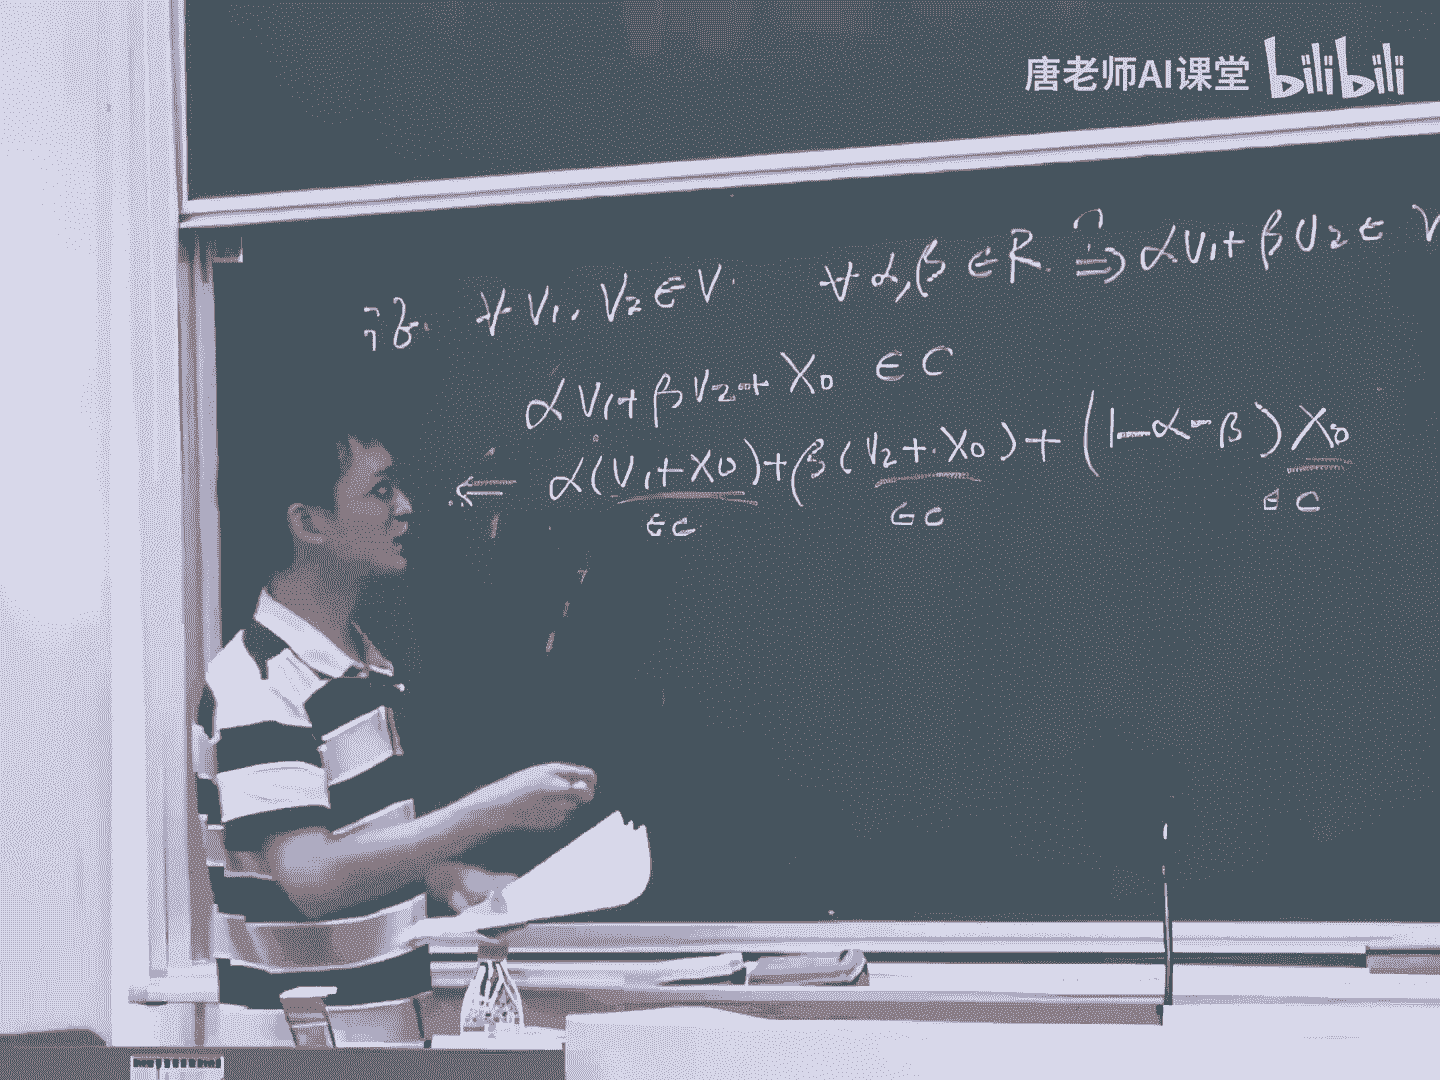 唐老师AI课堂 bilibili
证. ∀ V₁, V₂ ∈ V. ∀ α, β ∈ R. ⇒ αV₁ + βV₂ ∈ V
αV₁ + βV₂ + X₀ ∈ C
⇐ α(V₁ + X₀) + β(V₂ + X₀) + (1-α-β)X₀
∈C ∈C ∈C